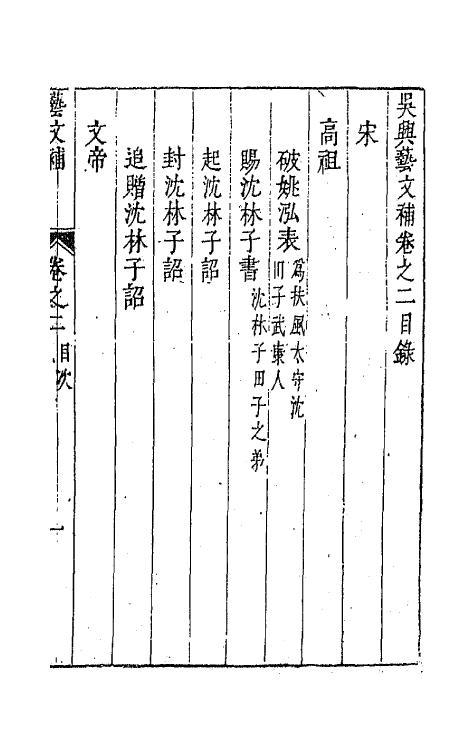 吳興藝文補卷之二目錄
宋
高祖
破姚泓表為扶風太守沈田子武康人
賜沈林子書沈林子田子之弟
起沈林子詔
封沈林子詔
追贈沈林子詔
文帝
藝文補 卷之二 目次 一